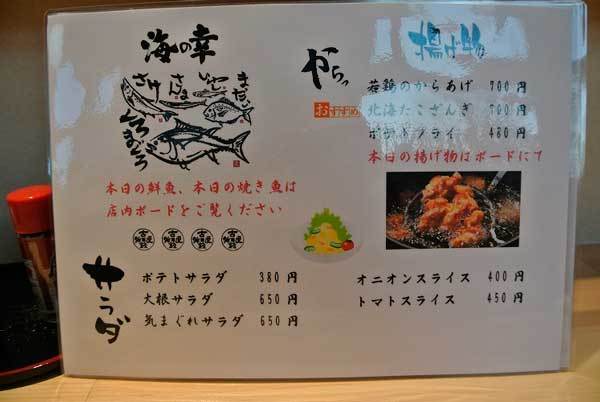 海の幸
さけ
さんま
いわし
まだい
くろまぐろ
本日の鮮魚、本日の焼き魚は
店内ボードをご覧ください
からっ
揚げ物
おすすめ
若鶏のからあげ 700 円
北海たこざんぎ 700 円
ポテトフライ 480 円
本日の揚げ物はボードにて
サラダ
ポテトサラダ 380 円
大根サラダ 650 円
気まぐれサラダ 650 円
オニオンスライス 400 円
トマトスライス 450 円